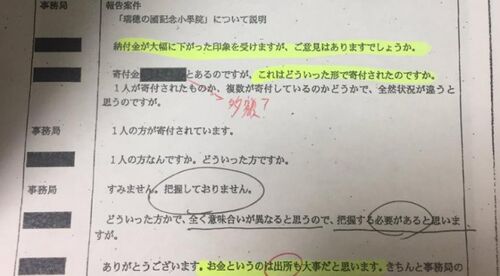 事務局
報告案件
「瑞穂の國記念小學院」について説明
納付金が大幅に下がった印象を受けますが、ご意見はありますでしょうか。
事務局
寄付金
とあるのですが、これはどういった形で寄付されたのですか。
1人が寄付されたものか、複数が寄付しているのかどうかで、全然状況が違うと
思うのですが。
多額?
事務局
1人の方が寄付されています。
1人の方なんですか。どういった方ですか。
事務局
すみません。把握しておりません。
どういった方かで、全く意味合いが異なると思うので、把握する必要があると思いま
すが。
ありがとうございます。お金というのは出所も大事だと思います。きちんと事務局の